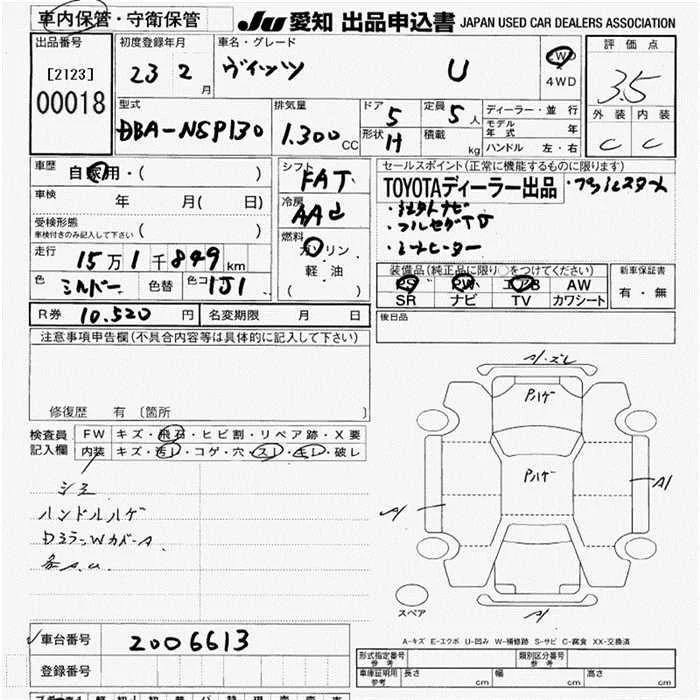 車内保管・守衛保管 JU 愛知 出品申込書 JAPAN USED CAR DEALERS ASSOCIATION
出品番号
[2123]
00018
初度登録年月
23 2 月
車名・グレード
ヴィッツ U
2WD
4WD
評価点
3.5
外装 内装
C C
型式
DBA-NSP130
排気量
1.300 CC
ドア 5
形状 H
定員 5 人
積載 kg
ディーラー・並行
モデル年式 年
ハンドル 左・右
車歴 自家用・( )
車検 年 月( 日)
受検形態
車検付きのみ記入して下さい ( )
走行 15万1千849 km
色 シルバー 色替 色コ 1J1
シフト FAT
冷房 AAC
燃料
ガソリン
軽・油
( )
セールスポイント(正常に機能するものに限ります)
TOYOTAディーラー出品 ・プッシュスタート
・フルセグTV
・シートヒーター
装備品(純正品に限り○をつけてください)
PS PW エアB AW
SR ナビ TV カワシート
新車保証書
有・無
R券 10.520 円 名変期限 月 日
後日品
注意事項申告欄(不具合内容等は具体的に記入して下さい)
修復歴 有 〔箇所 〕
検査員記入欄
FW キズ・飛石・ヒビ割・リペア跡・X要
内装 キズ・汚レ・コゲ・穴・スレ・モレ・破レ
シミ
ハンドルハゲ
DミラーWカバーA
各A.U.
A1・ズレ
Pハゲ
Pハゲ
A1
A1
A1
スペア
A-キズ E-エクボ U-凹み W-補修跡 S-サビ C-腐食 XX-交換済
車台番号 2006613
登録番号
形式指定番号 参考 類別区分番号 参考
車庫証明用 参考 長さ cm 幅 cm 高さ cm